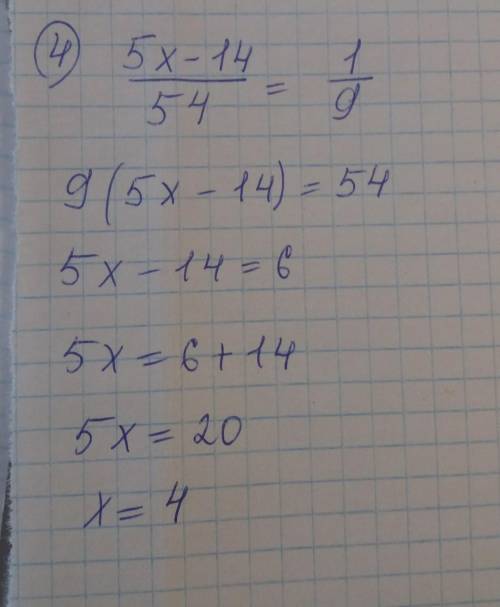 ④ (5x - 14)/54 = 1/9
9(5x - 14) = 54
5x - 14 = 6
5x = 6 + 14
5x = 20
x = 4